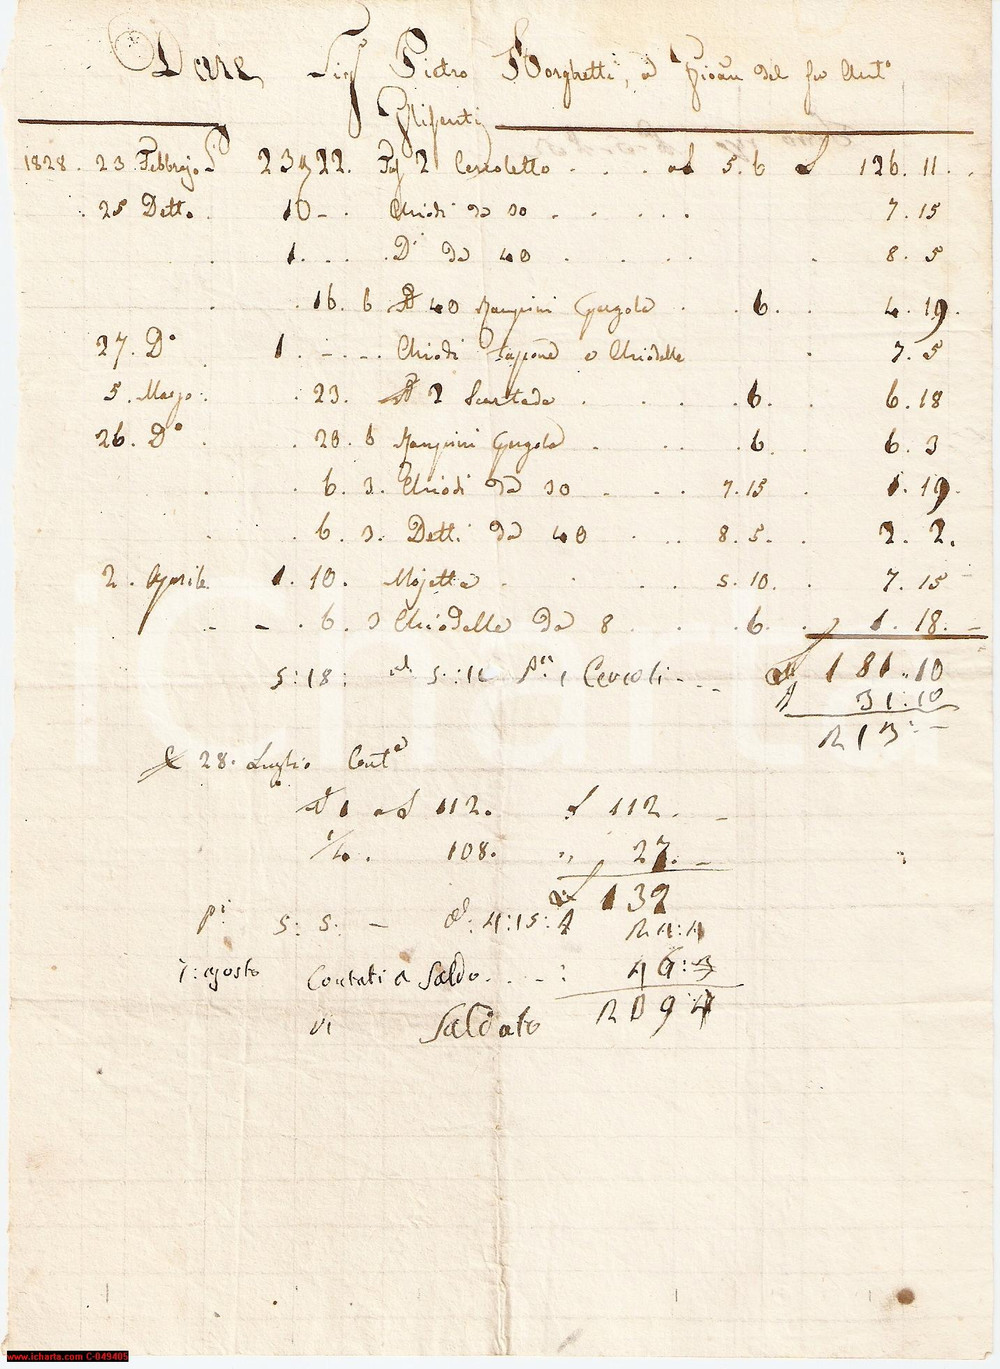 Dare Sigr Pietro Borghetti, a Gioan del fu Anto
Glisenti
1828. 23 Febbrajo 23 22. 2 Cercoletto . . . a£ 5.6 £ 126.11.
25 Detto. 10 - . Chiodi da 30 . . . . 7.15
1. . . . Di da 40 . . . . 8.5
16. 6 40 Gergola . . 6. . 4.19.
27. Do 1. - . - . Chiodi e Chiodelle . 7.5
5. Marzo . 23. 2 . . . 6. . 6.18
26. Do . . 20. 6 Gergola . . 6. . 6.3
. . 6. 3. Chiodi da 30 . . . 7.15 . 1.19.
. . 6. 3. Detti da 40 . . . 8.5. . 2.2.
2. Aprile 1. 10. Mojetta . . . 5.10. . 7.15
- - . 6. 3 Chiodelle da 8 . . . 6. . 1.18. -
5:18: Cercoli - - - 181.10
31:10
213: -
28. Luglio Cont
1 a£ 112. £ 112. -
1/4. 108. " 27. -
139
5:5: - 4:15:
7: agosto Contati a Saldo . . - :
Saldato 209 4
www.icharta.com C-049405